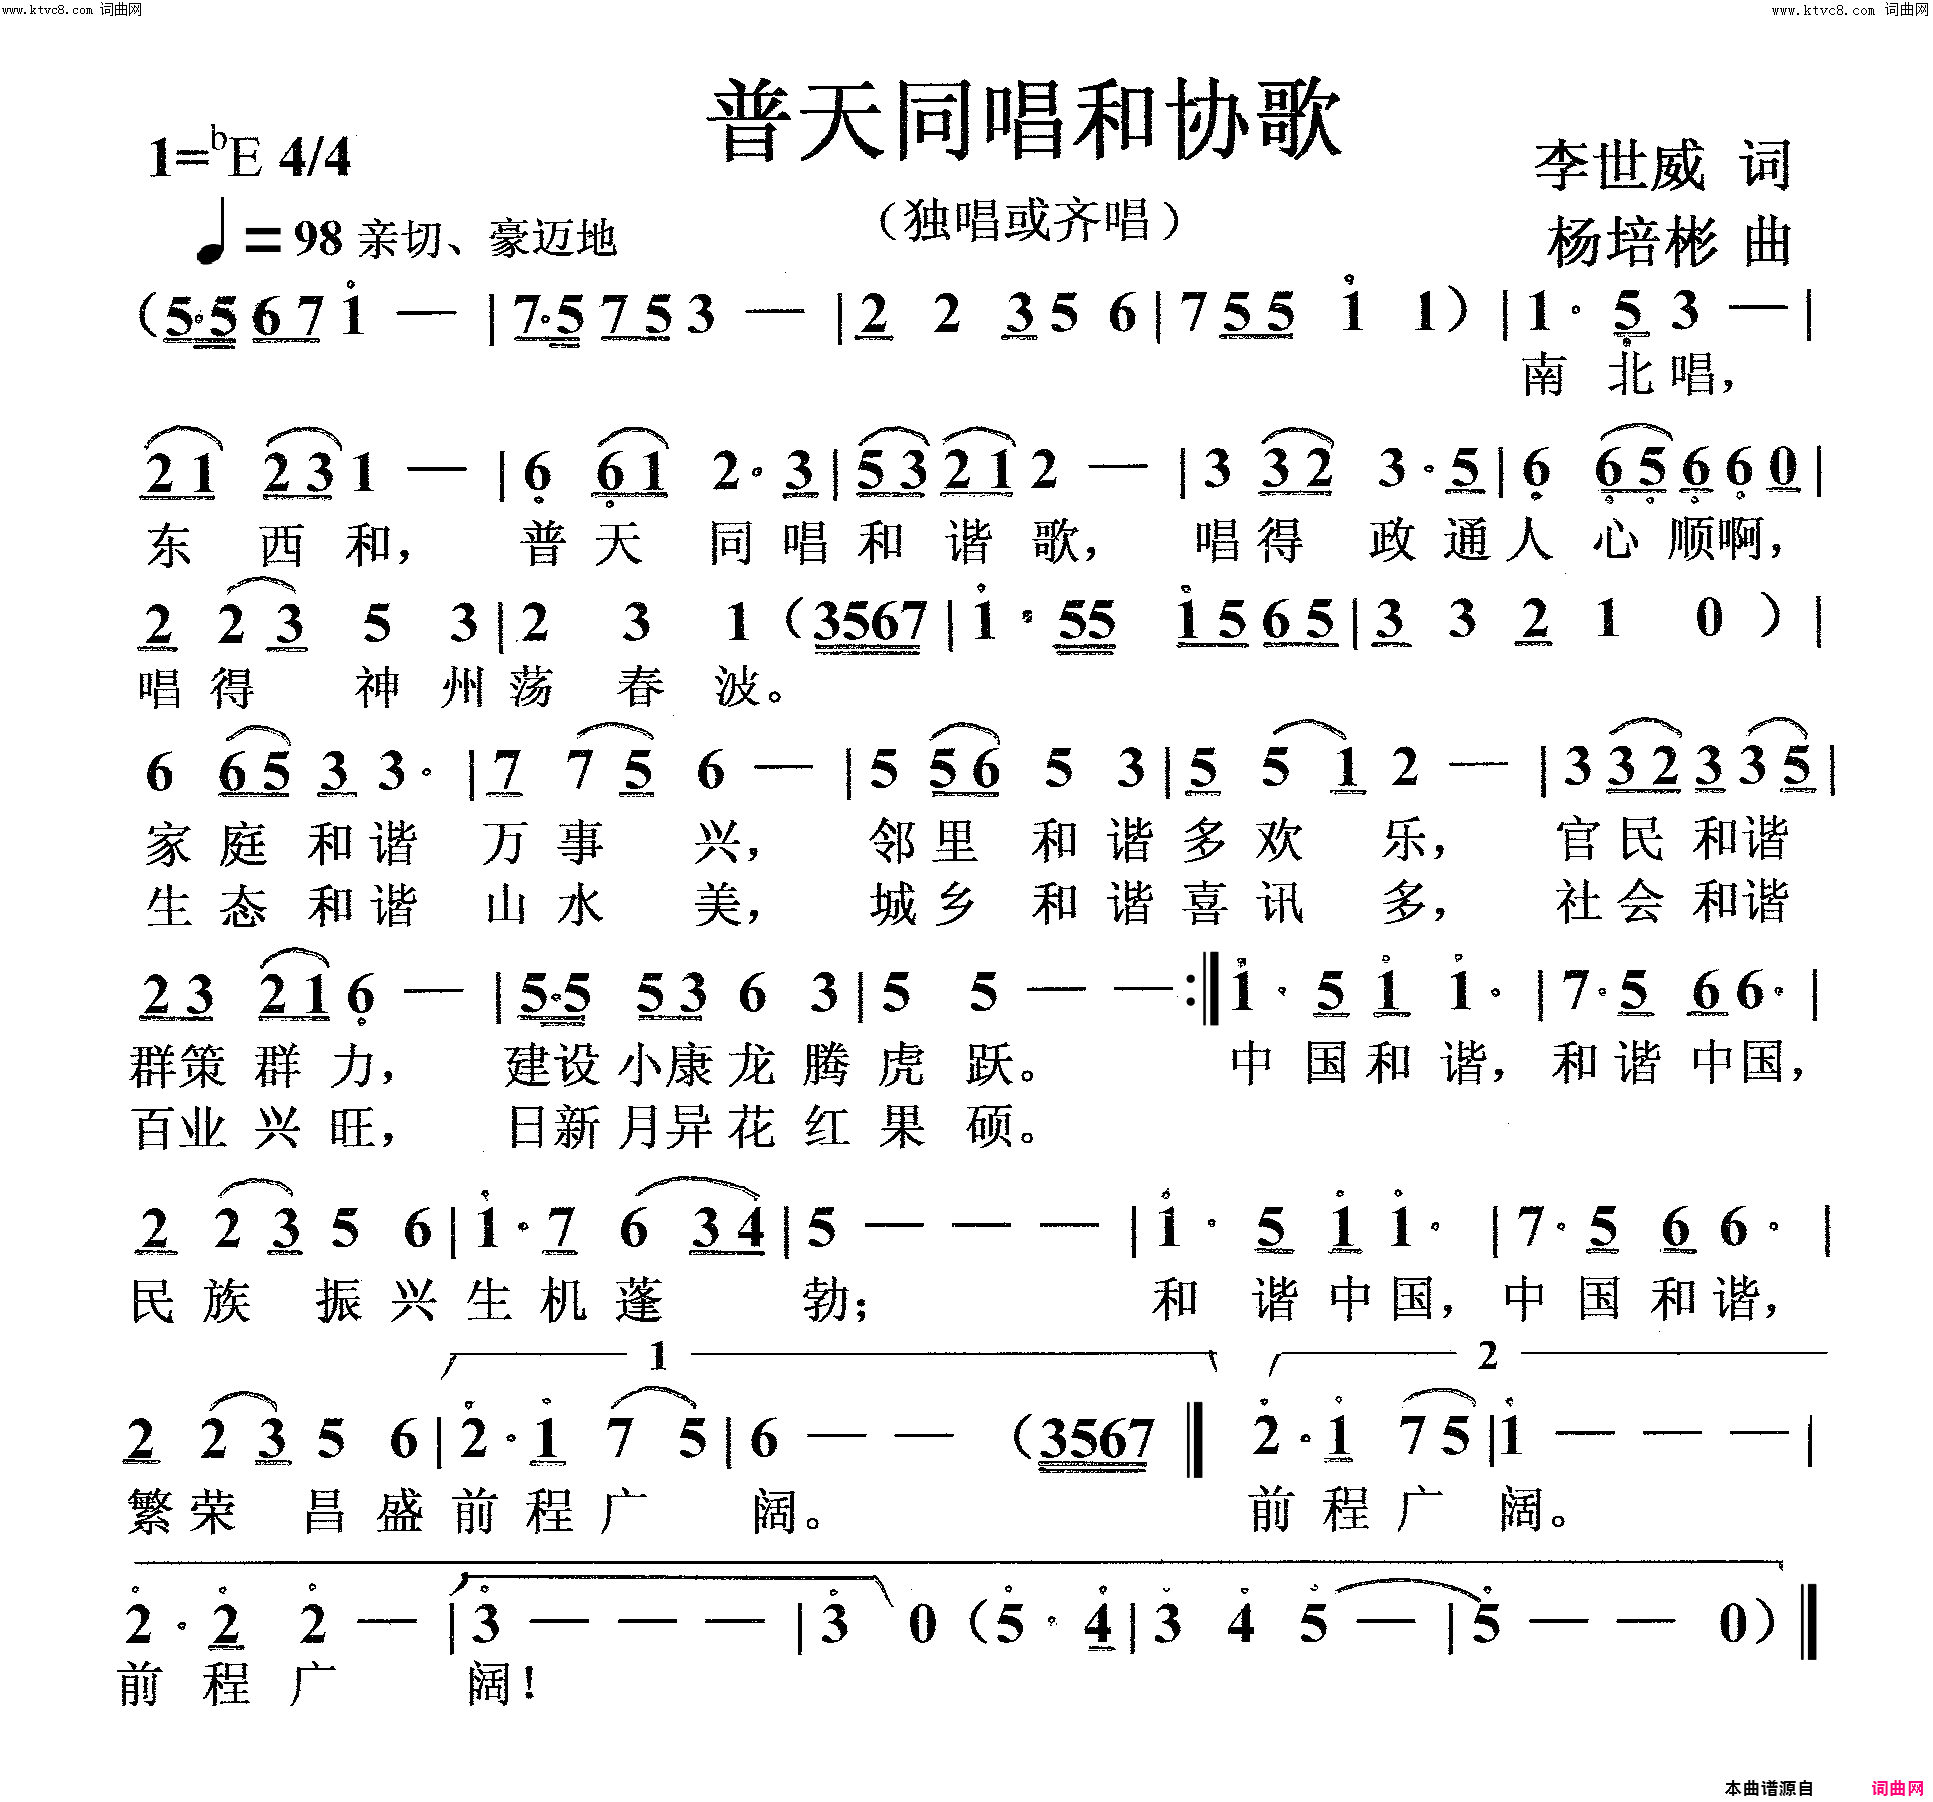 www.ktvc8.com 词曲网 www.ktvc8.com 词曲网
普天同唱和协歌
1=bE 4/4
李世威 词
♩=98 亲切、豪迈地 （独唱或齐唱）
杨培彬 曲
（5·5 6 7 1 — | 7·5 7 5 3 — | 2 2 3 5 6 | 7 5 5 1 1 ）| 1· 5 3 — |
南 北 唱，
2 1 2 3 1 — | 6 6 1 2· 3 | 5 3 2 1 2 — | 3 3 2 3· 5 | 6 6 5 6 6 0 |
东 西 和， 普 天 同 唱 和 谐 歌， 唱 得 政 通 人 心 顺 啊，
2 2 3 5 3 | 2 3 1 （3567 | 1· 55 1 5 6 5 | 3 3 2 1 0 ）|
唱 得 神 州 荡 春 波。
6 6 5 3 3· | 7 7 5 6 — | 5 5 6 5 3 | 5 5 1 2 — | 3 3 2 3 3 5 |
家 庭 和 谐 万 事 兴， 邻 里 和 谐 多 欢 乐， 官 民 和 谐
生 态 和 谐 山 水 美， 城 乡 和 谐 喜 讯 多， 社 会 和 谐
2 3 2 1 6 — | 5·5 5 3 6 3 | 5 5 — — :‖ 1· 5 1 1· | 7· 5 6 6· |
群 策 群 力， 建 设 小 康 龙 腾 虎 跃。 中 国 和 谐， 和 谐 中 国，
百 业 兴 旺， 日 新 月 异 花 红 果 硕。
2 2 3 5 6 | 1· 7 6 3 4 | 5 — — — | 1· 5 1 1· | 7· 5 6 6· |
民 族 振 兴 生 机 蓬 勃； 和 谐 中 国， 中 国 和 谐，
1 2
2 2 3 5 6 | 2· 1 7 5 | 6 — — （3567 ‖ 2· 1 7 5 | 1 — — — |
繁 荣 昌 盛 前 程 广 阔。 前 程 广 阔。
2· 2 2 — | 3 — — — | 3 0（5· 4 | 3 4 5 — | 5 — — 0）‖
前 程 广 阔！
本曲谱源自 词曲网